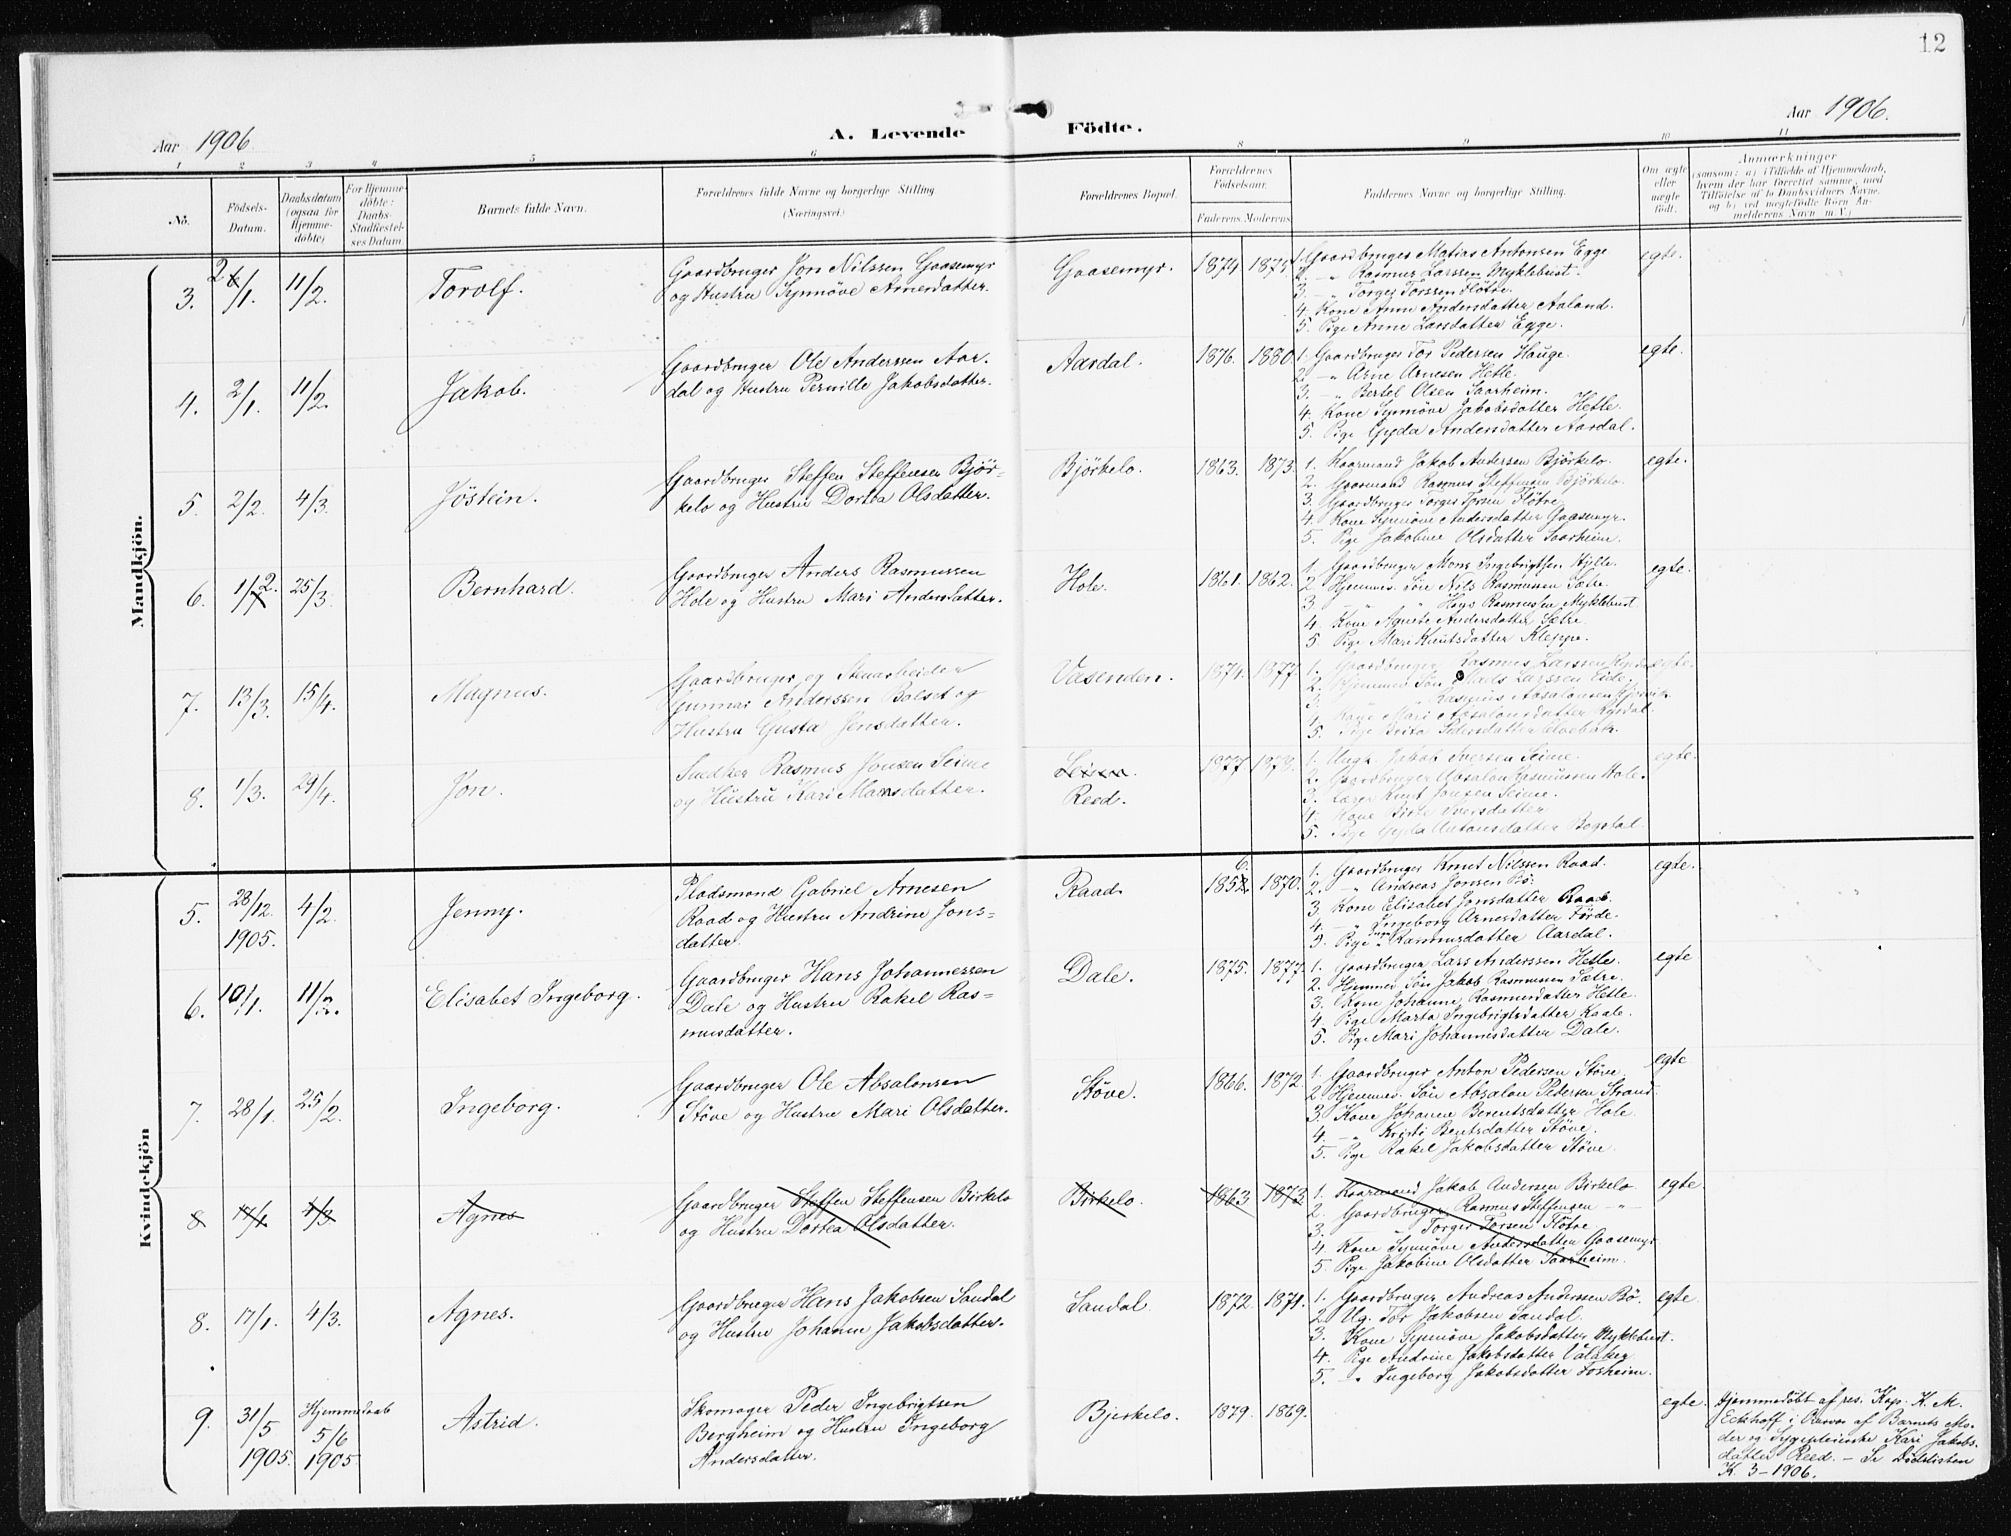 12
Aar 1906
A. Levende Födte.
Aar 1906.
1 2 3 4 5 6 8 9 10 11
No.
Födsels-Datum.
Daabsdatum (ogsaa for Hjemme-döbte)
For Hjemme-döbte: Daabs-Stadfæstel-ses Datum
Barnets fulde Navn.
Forældrenes fulde Navne og borgerlige Stilling (Næringsvei)
Forældrenes Bopæl.
Forældrenes Födselsaar.
Faderens. Moderens
Faddernes Navne og borgerlige Stilling.
Om ægte eller uægte födt.
Anmærkninger
(saasom: a) i Tilfælde af Hjemmedaab,
hvem der har forrettet samme, med
Tilföielse af to Daabsvidners Navne,
og b) ved uægtefödte Börn An-
melderens Navn m. V.)
Mandkjön.
3. 26/1. 11/2 Torolf.
Gaardbruger Jon Nilssen Gaasemyr
og Hustru Synnöve Arnesdatter.
Gaasemyr. 1874 1875
1. Gaardbruger Matias Antonsen Egge
2. — " Rasmus Larssen Myklebust.
3. — " Torger Torssen Flötre.
4. Kone Anne Andersdatter Aaland.
5. Pige Anne Larsdatter Egge.
egte.
4. 2/1. 11/2. Jakob.
Gaardbruger Ole Anderssen Aar-
dal og Hustru Pernille Jakobsdatter.
Aardal. 1876. 1880.
1. Gaardbruger Tor Pedersen Hauge.
2. — " Arne Arnesen Hetle.
3. — " Bertel Olsen Saarheim.
4. Kone Synnöve Jakobsdatter Hetle.
5. Pige Gyda Andersdatter Aardal.
egte.
5. 2/2. 4/3. Jöstein.
Gaardbruger Steffen Steffensen Björ-
kelo og Hustru Dortea Olsdatter.
Björkelo. 1863. 1873.
1. Kaarmand Jakob Andersen Björkelo.
2. Gaarmand Rasmus Steffensen Björkelo.
3. Gaardbruger Torger Torsen Flötre
4. Kone Synnöve Andersdatter Gaasemyr.
5. Pige Jakobine Olsdatter Saarheim.
egte.
6. 1/2. 25/3. Bernhard.
Gaardbruger Anders Rasmussen
Hole og Hustru Mari Andersdatter.
Hole. 1861. 1862.
1. Gaardbruger Mons Ingebrigtsen Hjelle.
2 Hjemmev. Sön Nils Rasmussen Sætre
3 — " — " Hans Rasmussen Myklebust.
4. Kone Agnete Andersdatter Sætre.
5. Pige Mari Knutsdatter Kleppe.
egte.
7. 13/3. 15/4. Magnus.
Gaardbruger og Stenarbeider
Gunnar Anderssen Bolset og
Hustru Gusta Jensdatter.
Vasenden. 1874. 1877.
1. Gaardbruger Rasmus Larssen
2. Hjemmev Sön Mads Larssen Eide.
3. Rasmus Absalonsen
4. Kone Mari Absalonsdatter
5. Pige Brita Pedersdatter
egte.
8. 1/3. 29/4. Jon.
Snedker Rasmus Jonsen Seime
og Hustru Kari Monsdatter.
Seime
Reed.
1877. 1878.
1. Ungk. Jakob Iversen Seime.
2. Gaardbruger Absalon Rasmussen Hole.
3. Lærer Knut Jonsen Seime.
4. Kone Birte Iversdatter
5. Pige Gyda Antonsdatter Bogstal.
egte.
Kvindekjön
5. 28/12 1905. 4/2. Jenny.
Pladsmand Gabriel Arnesen
Raad og Hustru Andrine Jons-
datter.
Raad. 1856. 1870.
1. Gaardbruger Knut Nilssen Raad.
2. — " Andreas Jonsen Bö.
3. Kone Elisabet Jonsdatter Raad.
4. — " Ingeborg Arnesdatter Förde.
5. Pige Rasmusdatter Aardal.
egte.
6. 10/1. 11/2. Elisabet Ingeborg.
Gaardbruger Hans Johannessen
Dale og Hustru Rakel Ras-
musdatter.
Dale. 1875. 1877.
1. Gaardbruger Lars Anderssen Hetle.
2. Hjemmev Sön Jakob Rasmussen Sætre.
3. Kone Johanne Rasmusdatter Hetle.
4. Pige Marta Ingebrigtsdatter Kaale.
5. Pige Mari Johannesdatter Dale.
egte
7. 28/1. 25/2. Ingeborg.
Gaardbruger Ole Absalonsen
Störe og Hustru Mari Olsdatter.
Störe. 1866. 1872.
1. Gaardbruger Anton Pedersen Störe.
2 Hjemmev. Sön Absalon Pedersen Strand.
3. Kone Johanne Berentsdatter Hole.
4. — " Kristi Bentsdatter Störe.
5. Pige Rakel Jakobsdatter Störe.
egte
8 4/3 Agnes
Gaardbruger Steffen Steffensen Birkelo
og Hustru Dortea Olsdatter.
Birkelo. 1863 1873
1. Kaarmand Jakob Andersen Birkelo
2. Gaardbruger Rasmus Steffensen — " —
3. " Torger Torsen Flötre
4. Kone Synnöve Andersdatter Gaasemyr
5. Pige Jakobine Olsdatter Saarheim.
egte.
8. 17/1. 4/3. Agnes.
Gaardbruger Hans Jakobsen Sandal
og Hustru Johanne Jakobsdatter.
Sandal. 1872. 1871.
1. Gaardbruger Andreas Anderssen Bö.
2 Ug. Tor Jakobsen Sandal.
3. Kone Synnöve Jakobsdatter Myklebust.
4. Pige Andrine Jakobsdatter
5. — " Ingeborg Jakobsdatter Fosheim.
egte.
9. 31/5 1905. Hjemmedaab 5/6 1905. Astrid.
Skomager Peder Ingebrigtsen
Bergheim og Hustru Ingeborg
Andersdatter.
Bjerkelo. 1879. 1869.
egte.
Hjemmedöbt af res. Kap. K. M.
Eckhoff i Overvær af Barnets Mo-
der og Sygepleierske Kari Jakobs-
datter Reed. — Se Dödslisten
K. 3 – 1906.